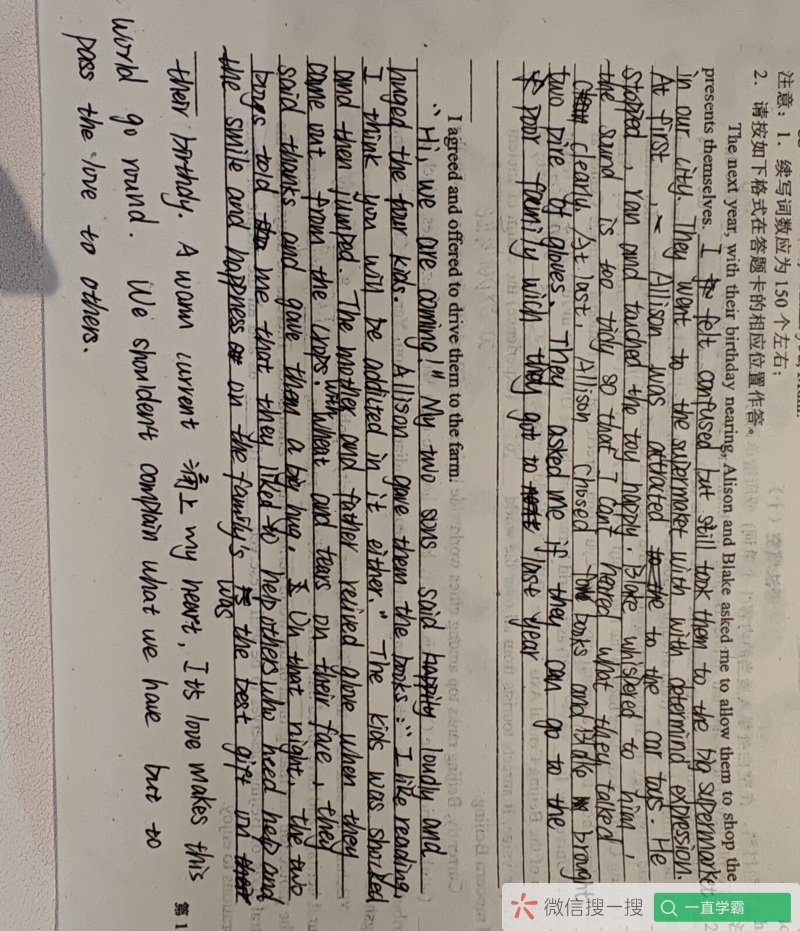 注意：1. 续写词数应为 150 个左右；
2. 请按如下格式在答题卡的相应位置作答。
The next year, with their birthday nearing, Alison and Blake asked me to allow them to shop the
presents themselves. I felt confused but still took them to the big supermarket
in our city. They went to the supermaket with with determind expression.
At first, Allison was attracted to the car toys. He
stopped, ran and touched the toy happily. Blake whispered to him,
the sound is too tidy so that I can't heared what they talked
clearly. At last, Allison chosed books and Blake brought
two pire of gloves. They asked me if they can go to the
poor faunily wich they got to last year
I agreed and offered to drive them to the farm.
"Hi, we are coming!" My two sons said happily loudly and
huged the four kids. Allison gave them the books: "I like reading,
I think you will be addited in it either." The kids was shorked
and then jumped. The mother and father relived glove when they
came out from the crops. With wheat and tears on their face, they
said thanks and gave them a big hug. On that night, the two
boys told me that they liked to help others who need help and
the smile and happness on the family's was the best gift on
their birthdy. A warm current 涌上 my heart, Its love makes this
world go round. We shouldn't complain what we have but to
pass the love to others.
第 1
微信搜一搜
一直学霸